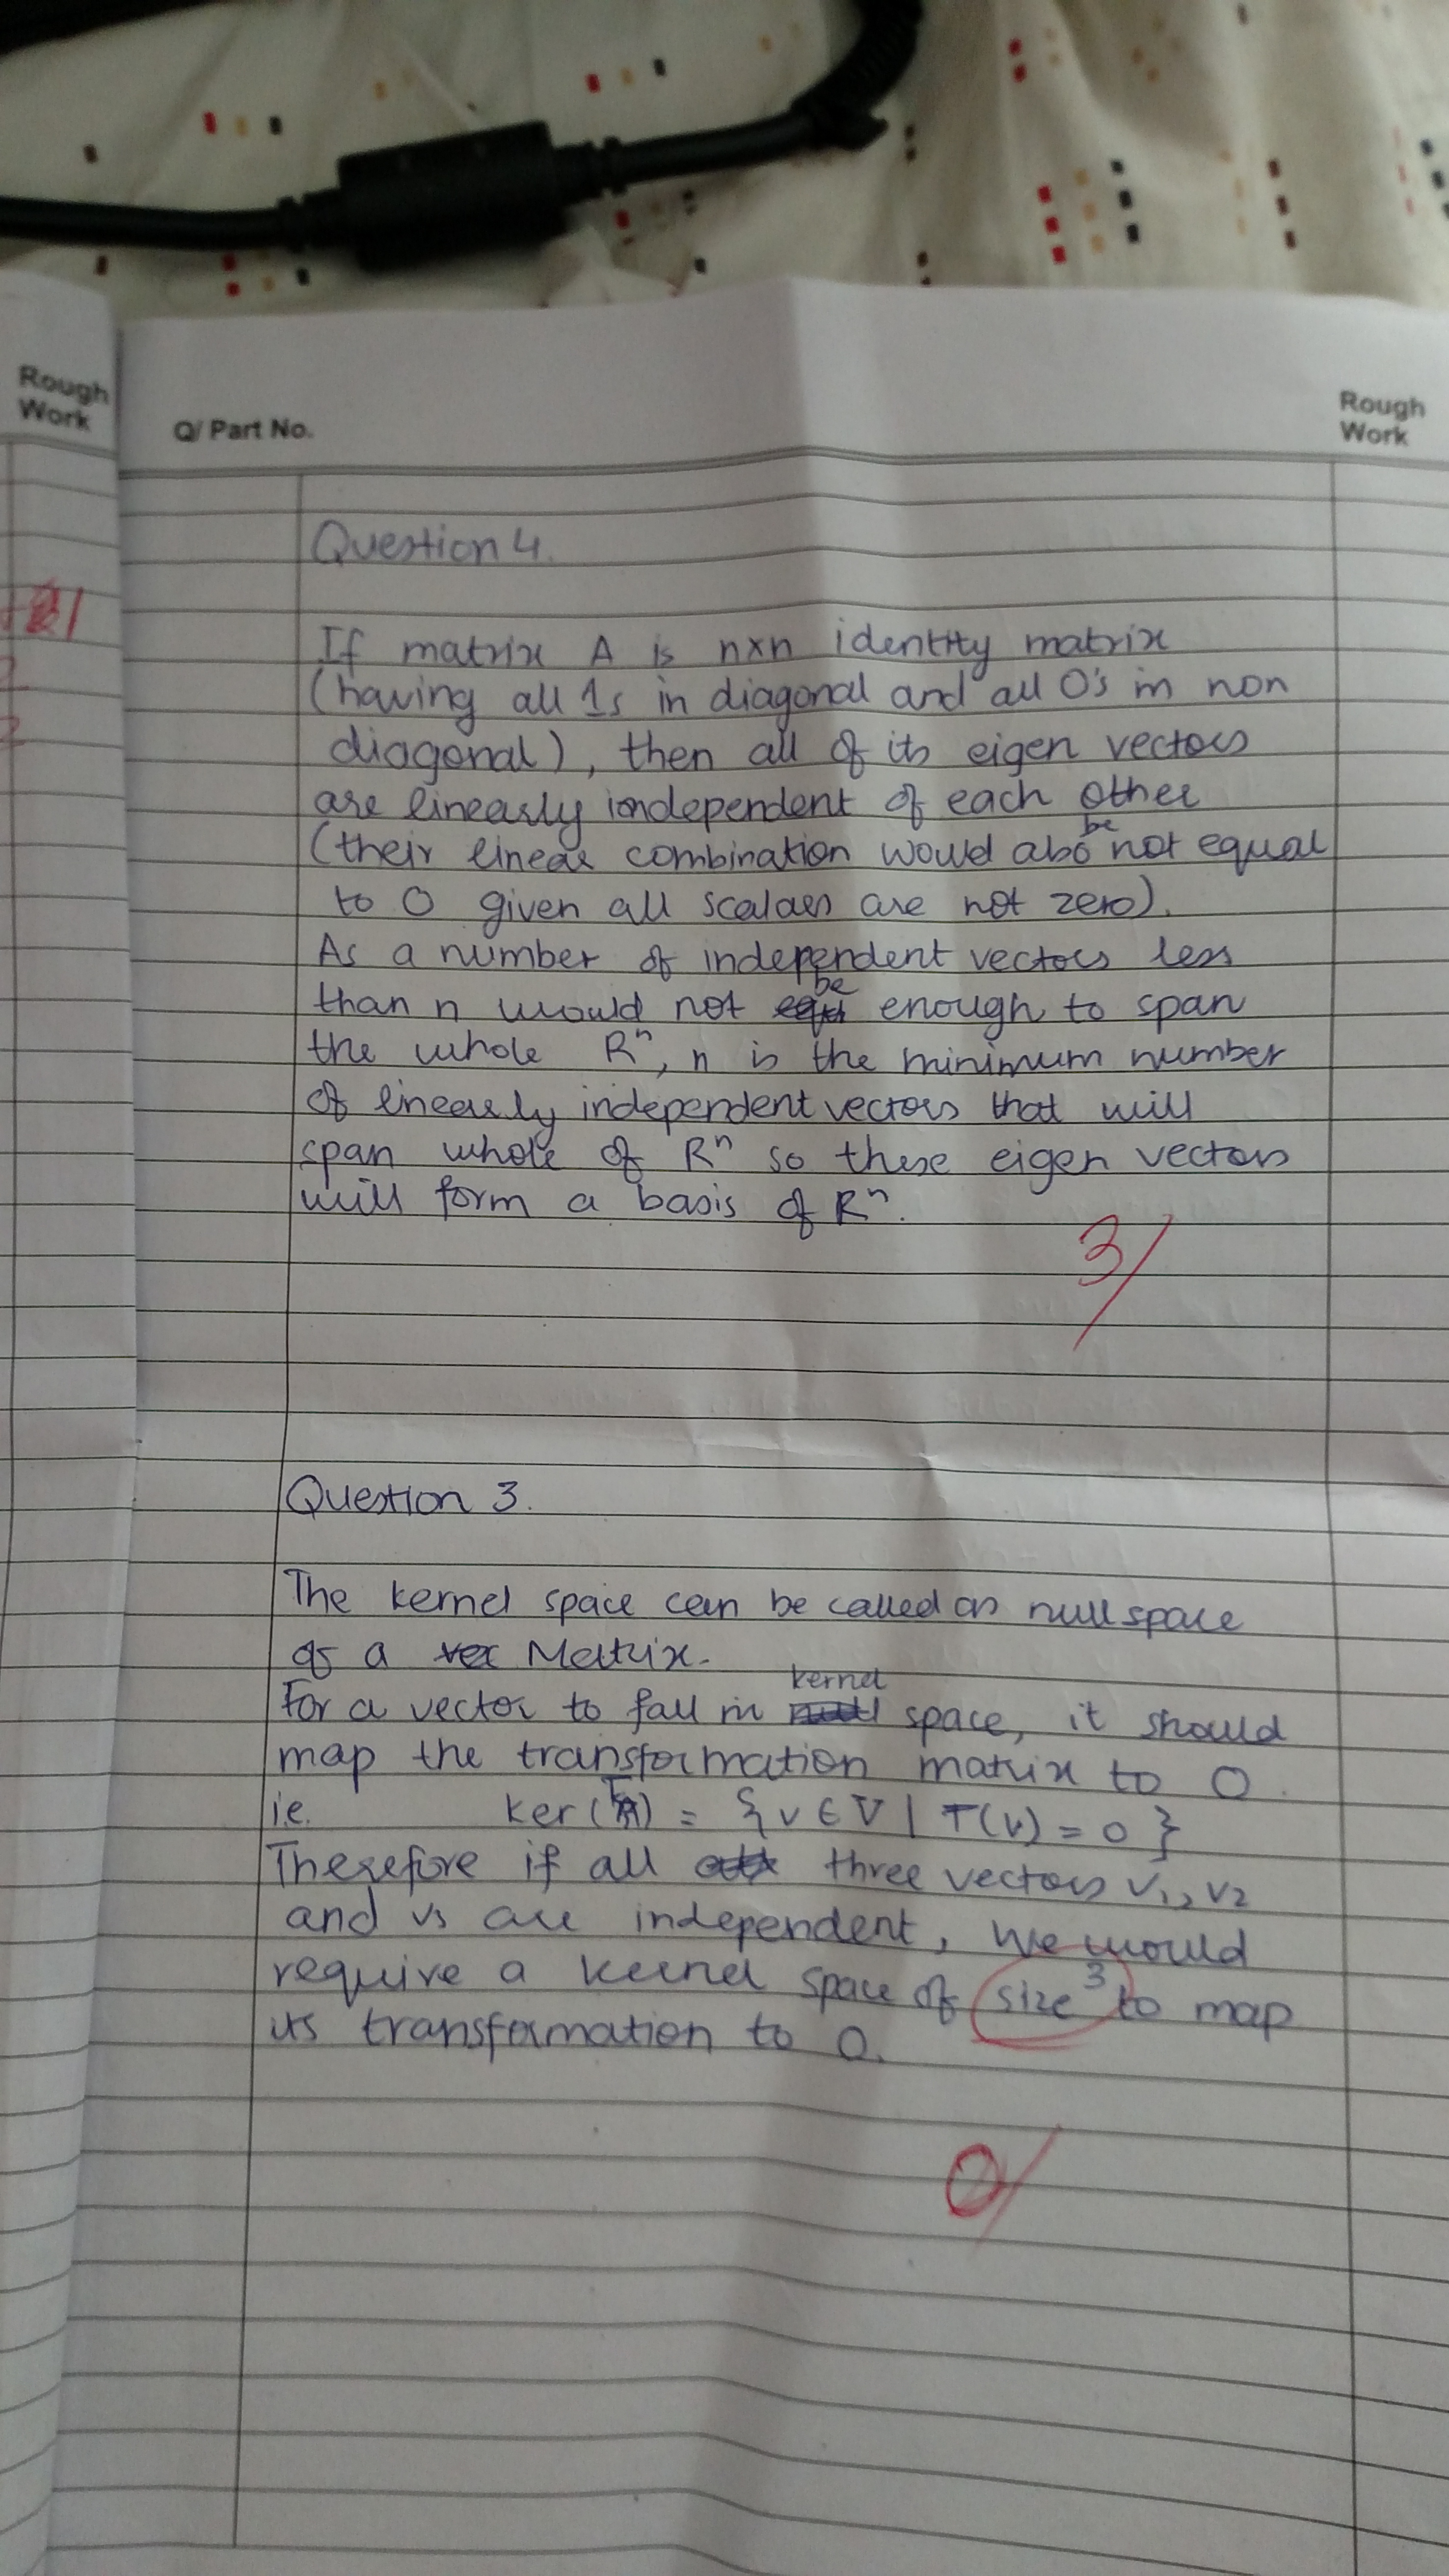 Rough
Work
Q/ Part No.
Rough
Work
Question 4.
If matrix A is nxn identity matrix
(having all 1s in diagonal and all 0's in non
diagonal), then all of its eigen vectors
are linearly independent of each other
(their linear combination would also be not equal
to 0 given all scalars are not zero).
As a number of independent vectors less
than n would not be enough to span
the whole Rⁿ, n is the minimum number
of linearly independent vectors that will
span whole of Rⁿ so these eigen vectors
will form a basis of Rⁿ.
3/
Question 3.
The kernel space can be called as null space
of a Matrix.
For a vector to fall in kernel space, it should
map the transformation matrix to 0.
i.e. Ker(T) = {v ∈ V | T(v) = 0}
Therefore if all three vectors v1, v2
and v3 are independent, we would
require a kernel space of size 3 to map
its transformation to 0.
0/